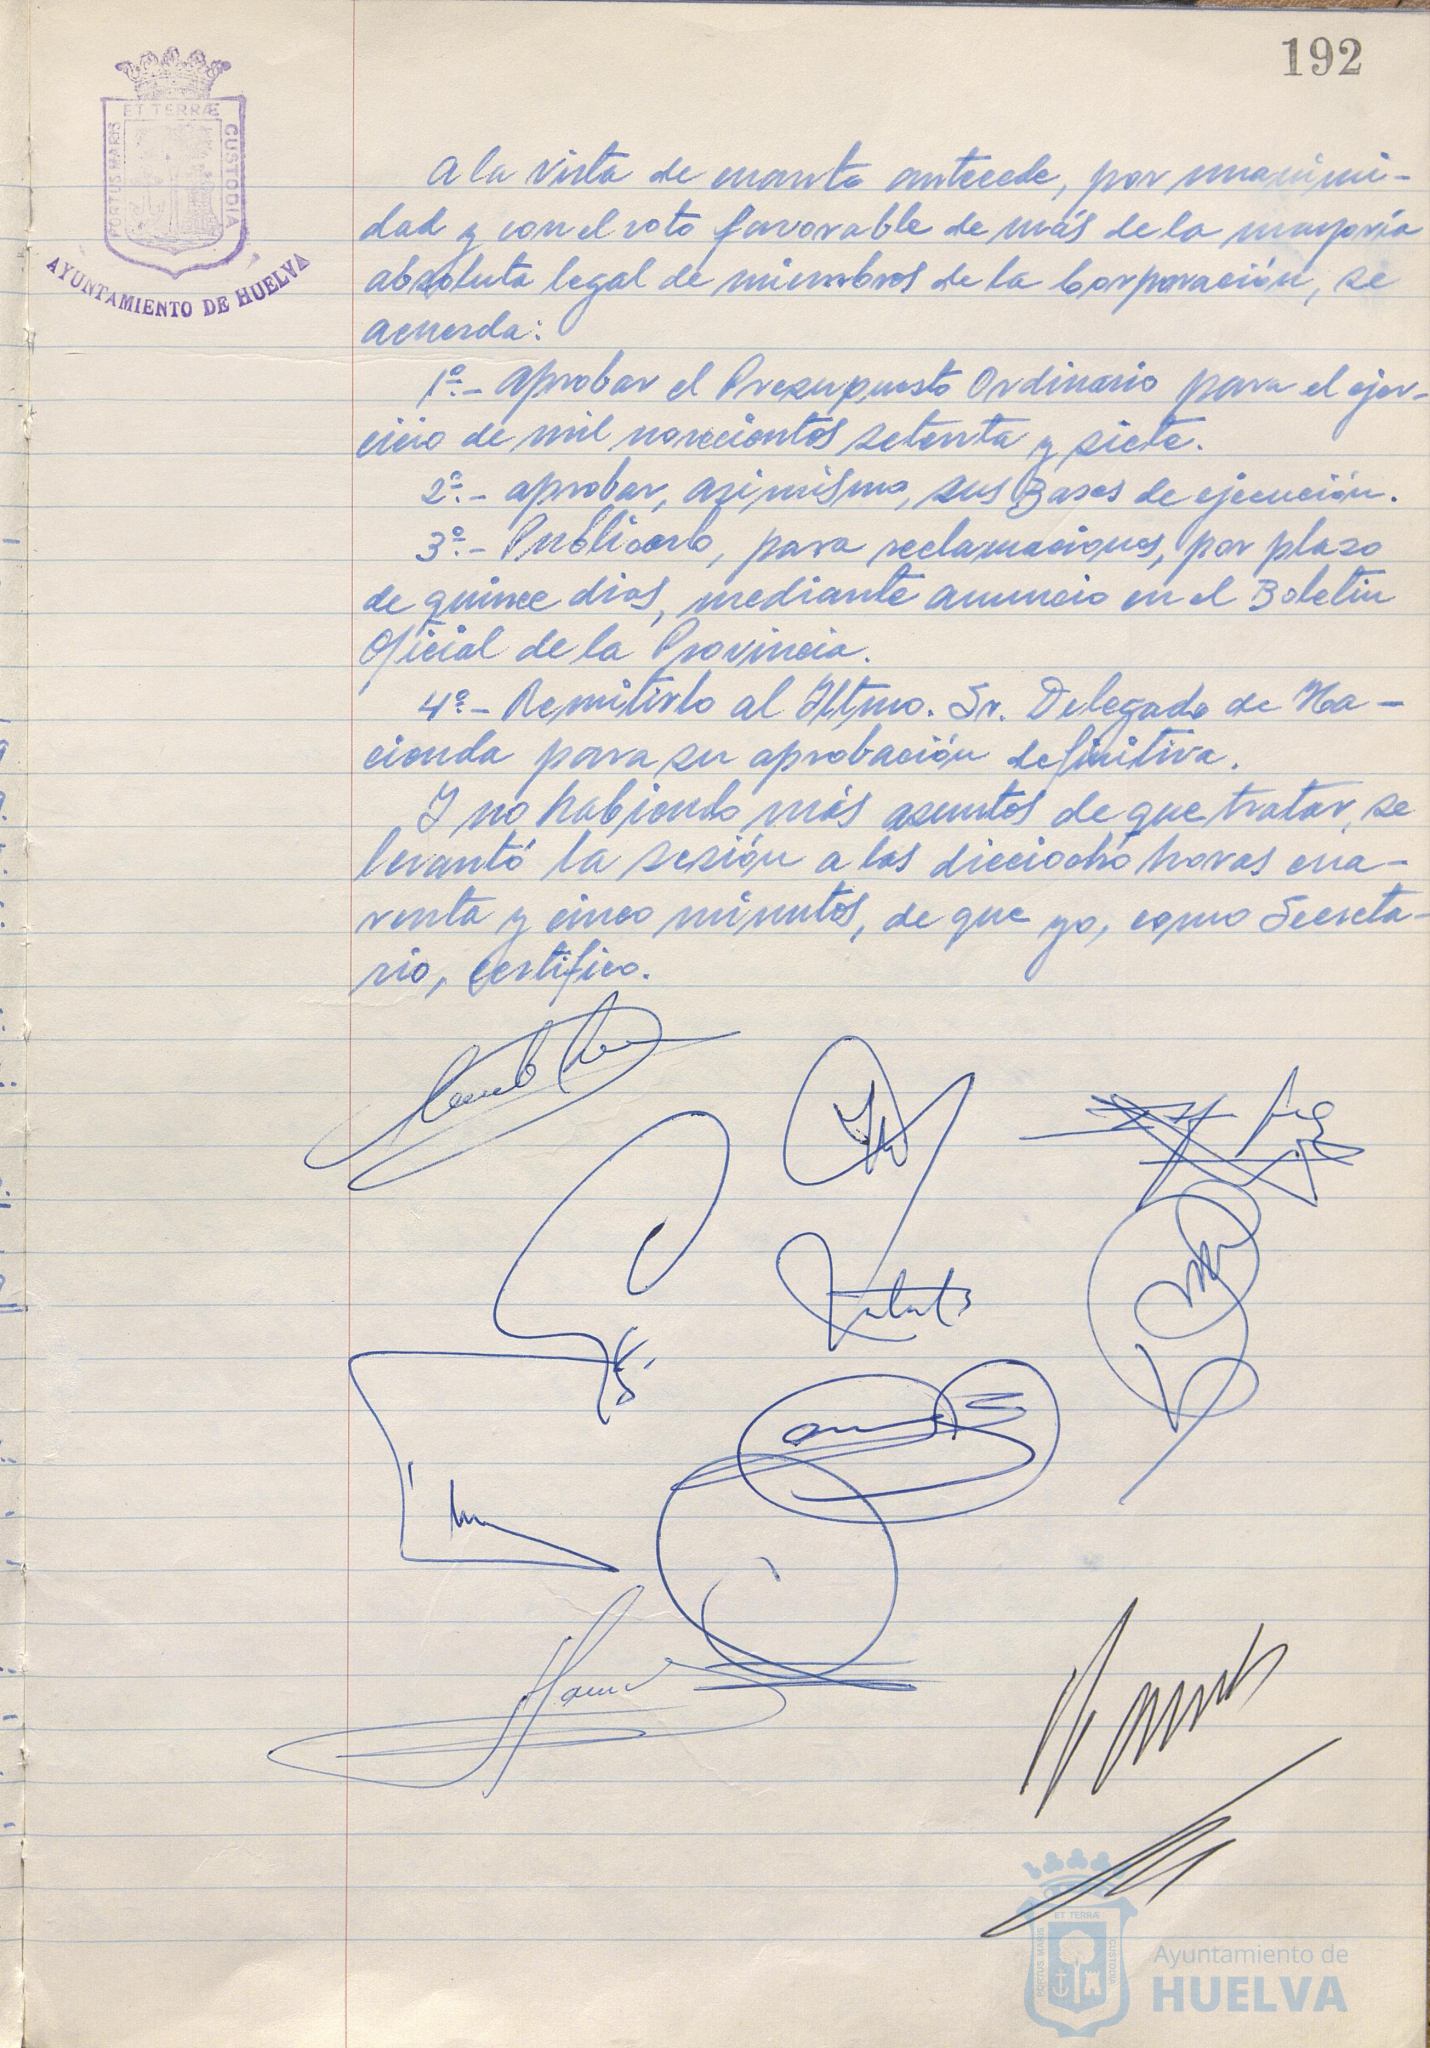 192
PORTUS MARIS
ET TERRÆ
CUSTODIA
AYUNTAMIENTO DE HUELVA
A la vista de cuanto antecede, por unanimi-
dad y con el voto favorable de más de la mayoría
absoluta legal de miembros de la Corporación, se
acuerda:
1º.- Aprobar el Presupuesto Ordinario para el ejer-
cicio de mil novecientos setenta y siete.
2º.- Aprobar, asimismo, sus Bases de ejecución.
3º.- Publicarlo, para reclamaciones, por plazo
de quince dias, mediante anuncio en el Boletin
Oficial de la Provincia.
4º.- Remitirlo al Iltmo. Sr. Delegado de Ha-
cienda para su aprobación definitiva.
Y no habiendo más asuntos de que tratar, se
levantó la sesión a las dieciocho horas cua-
renta y cinco minutos, de que yo, como Secreta-
rio, certifico.
PORTUS MARIS
ET TERRÆ
CUSTODIA
Ayuntamiento de
HUELVA